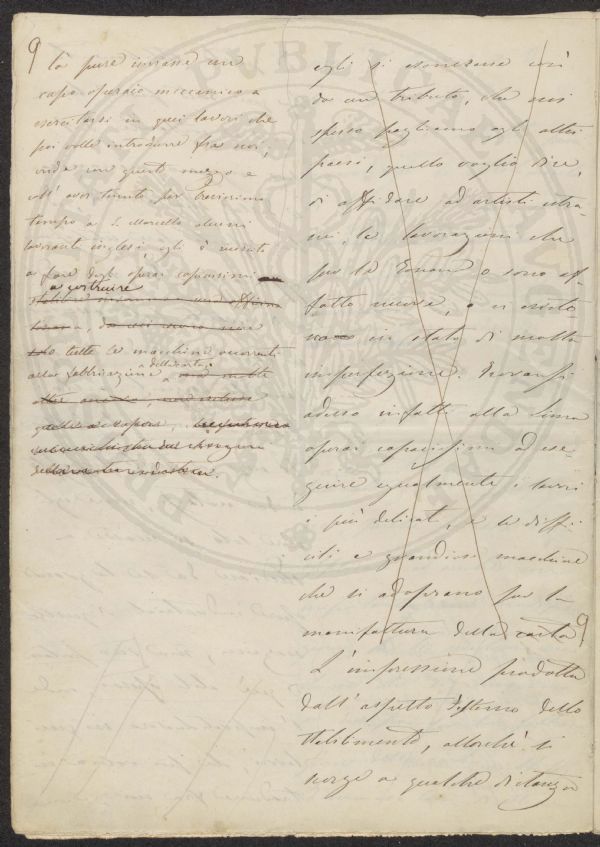 9
là pure inviasse un
capo operaio meccanico a
esercitarsi in quei lavori che
poi volle introdurre fra noi,
onde con questo mezzo e
coll' aver tenuto per brevissimo
tempo a S. Marcello alcuni
lavoranti inglesi, egli è riescito
a fare degli operai capacissimi
a costruire
tutte le macchine occorrenti
alla fabbricazione della carta,
quelle a vapore,
egli si esonerasse così
da un tributo, che noi
spesso paghiamo agli altri
paesi, quello voglio dire,
di affidare ad artisti stra-
nieri, le lavorazioni che
per la Toscana o sono af-
fatto nuove, o vi esisto-
no in stato di molta
imperfezione. Trovansi
adesso infatti alla Lima
operai capacissimi ad ese-
guire egualmente i lavori
i più delicati, e le diffi-
cili e grandiose macchine
che si adoprano per la
manifattura della carta
9
L'impressione prodotta
dall'aspetto esterno dello
Stabilimento, allorchè si
scorge a qualche distanza